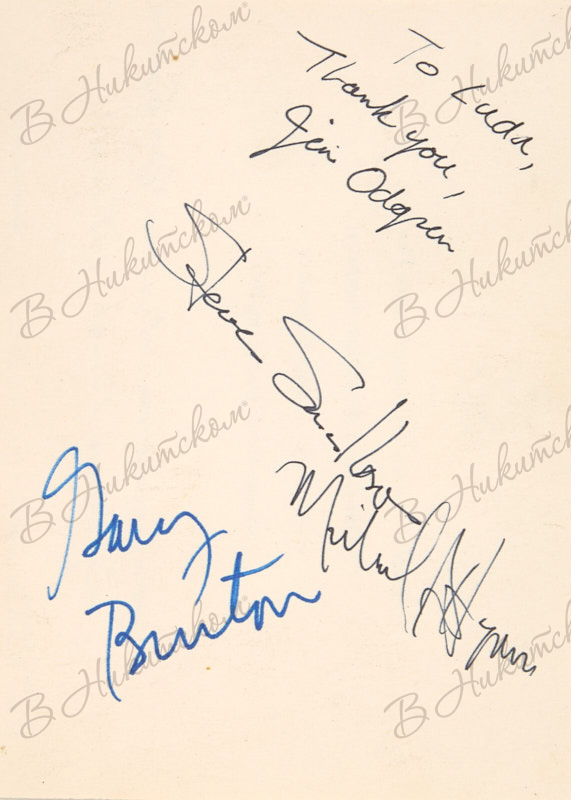 To Luda,
Thank you,
Jim Odgren
Steve Swallow
Gary
Burton
Michael Hyman
В Никитском®
В Никитском®
В Никитском®
В Никитском®
В Никитском®
В Никитском®
В Никитском®
В Никитском®